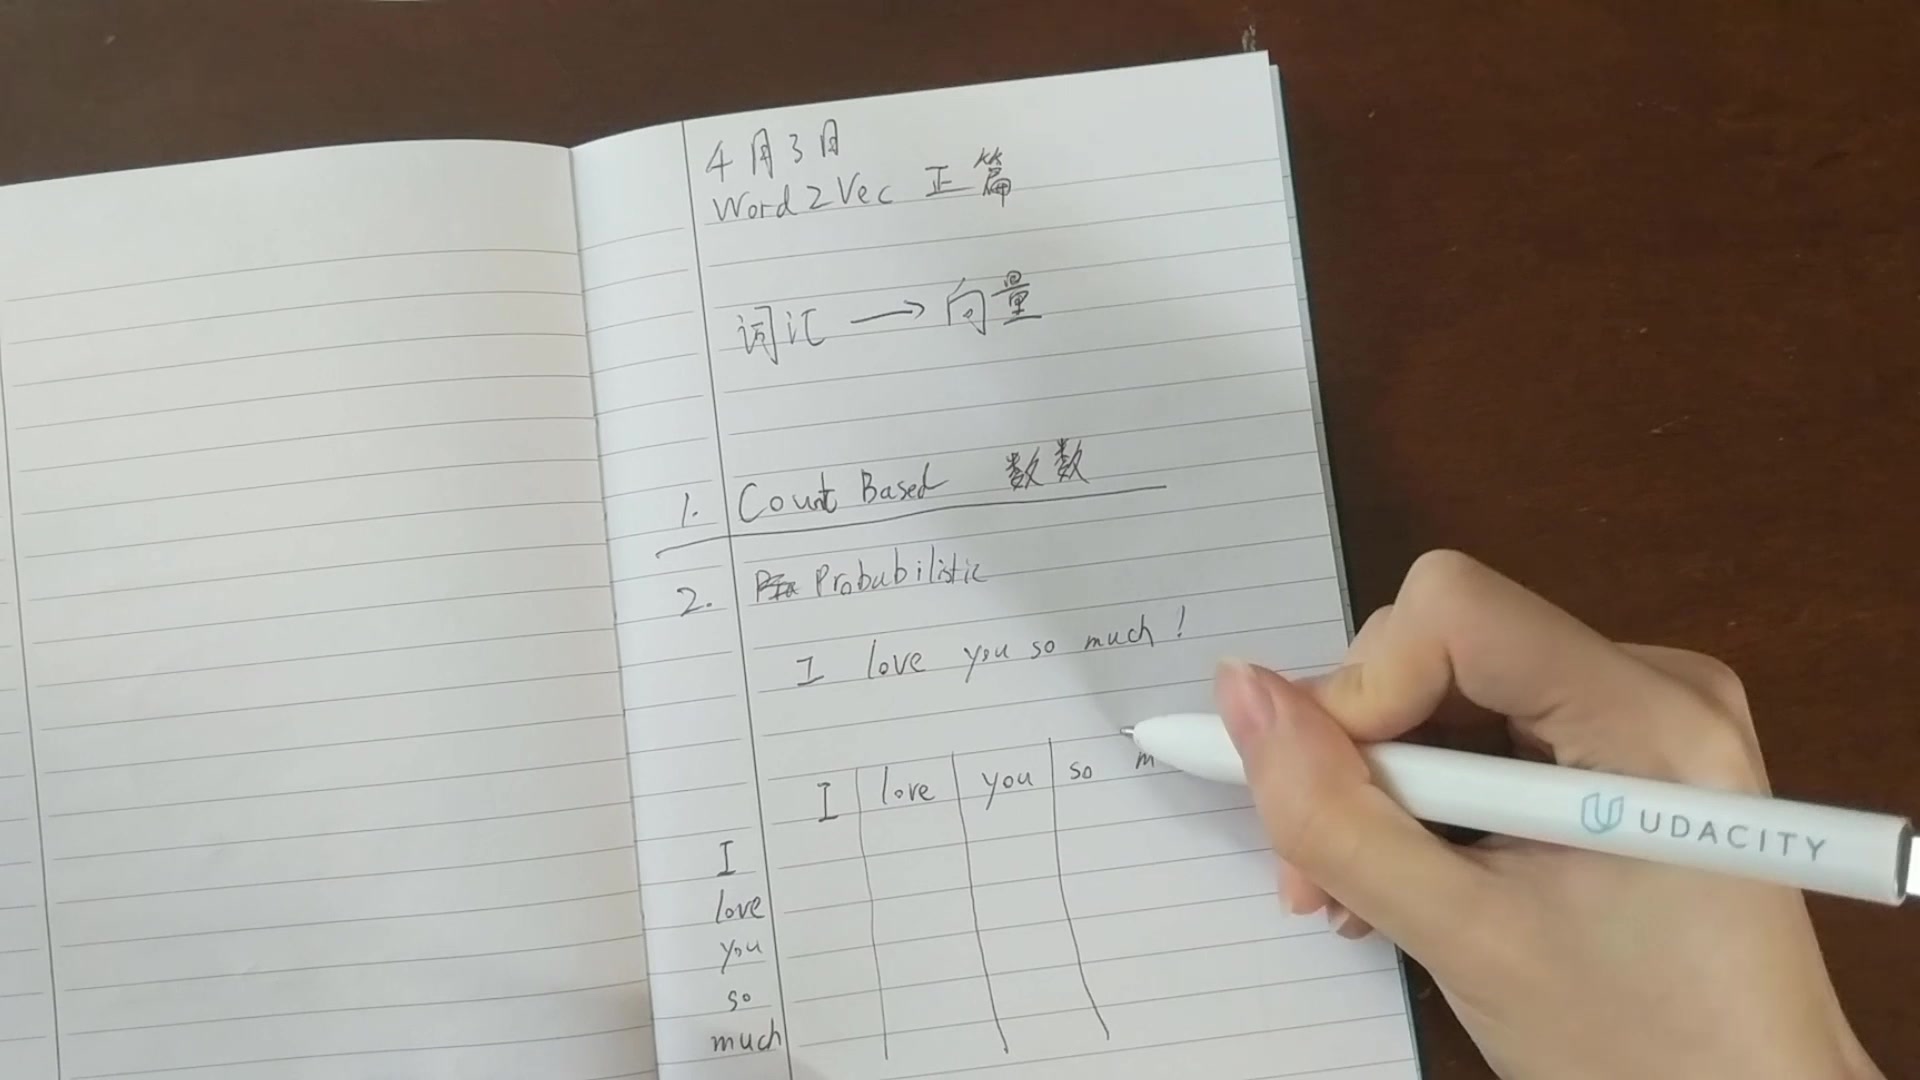 4月3日
Word2Vec 正篇
词汇 → 向量
1. Count Based 数数
2. Probabilistic
I love you so much!
I love you so m
I
love
you
so
much
UDACITY